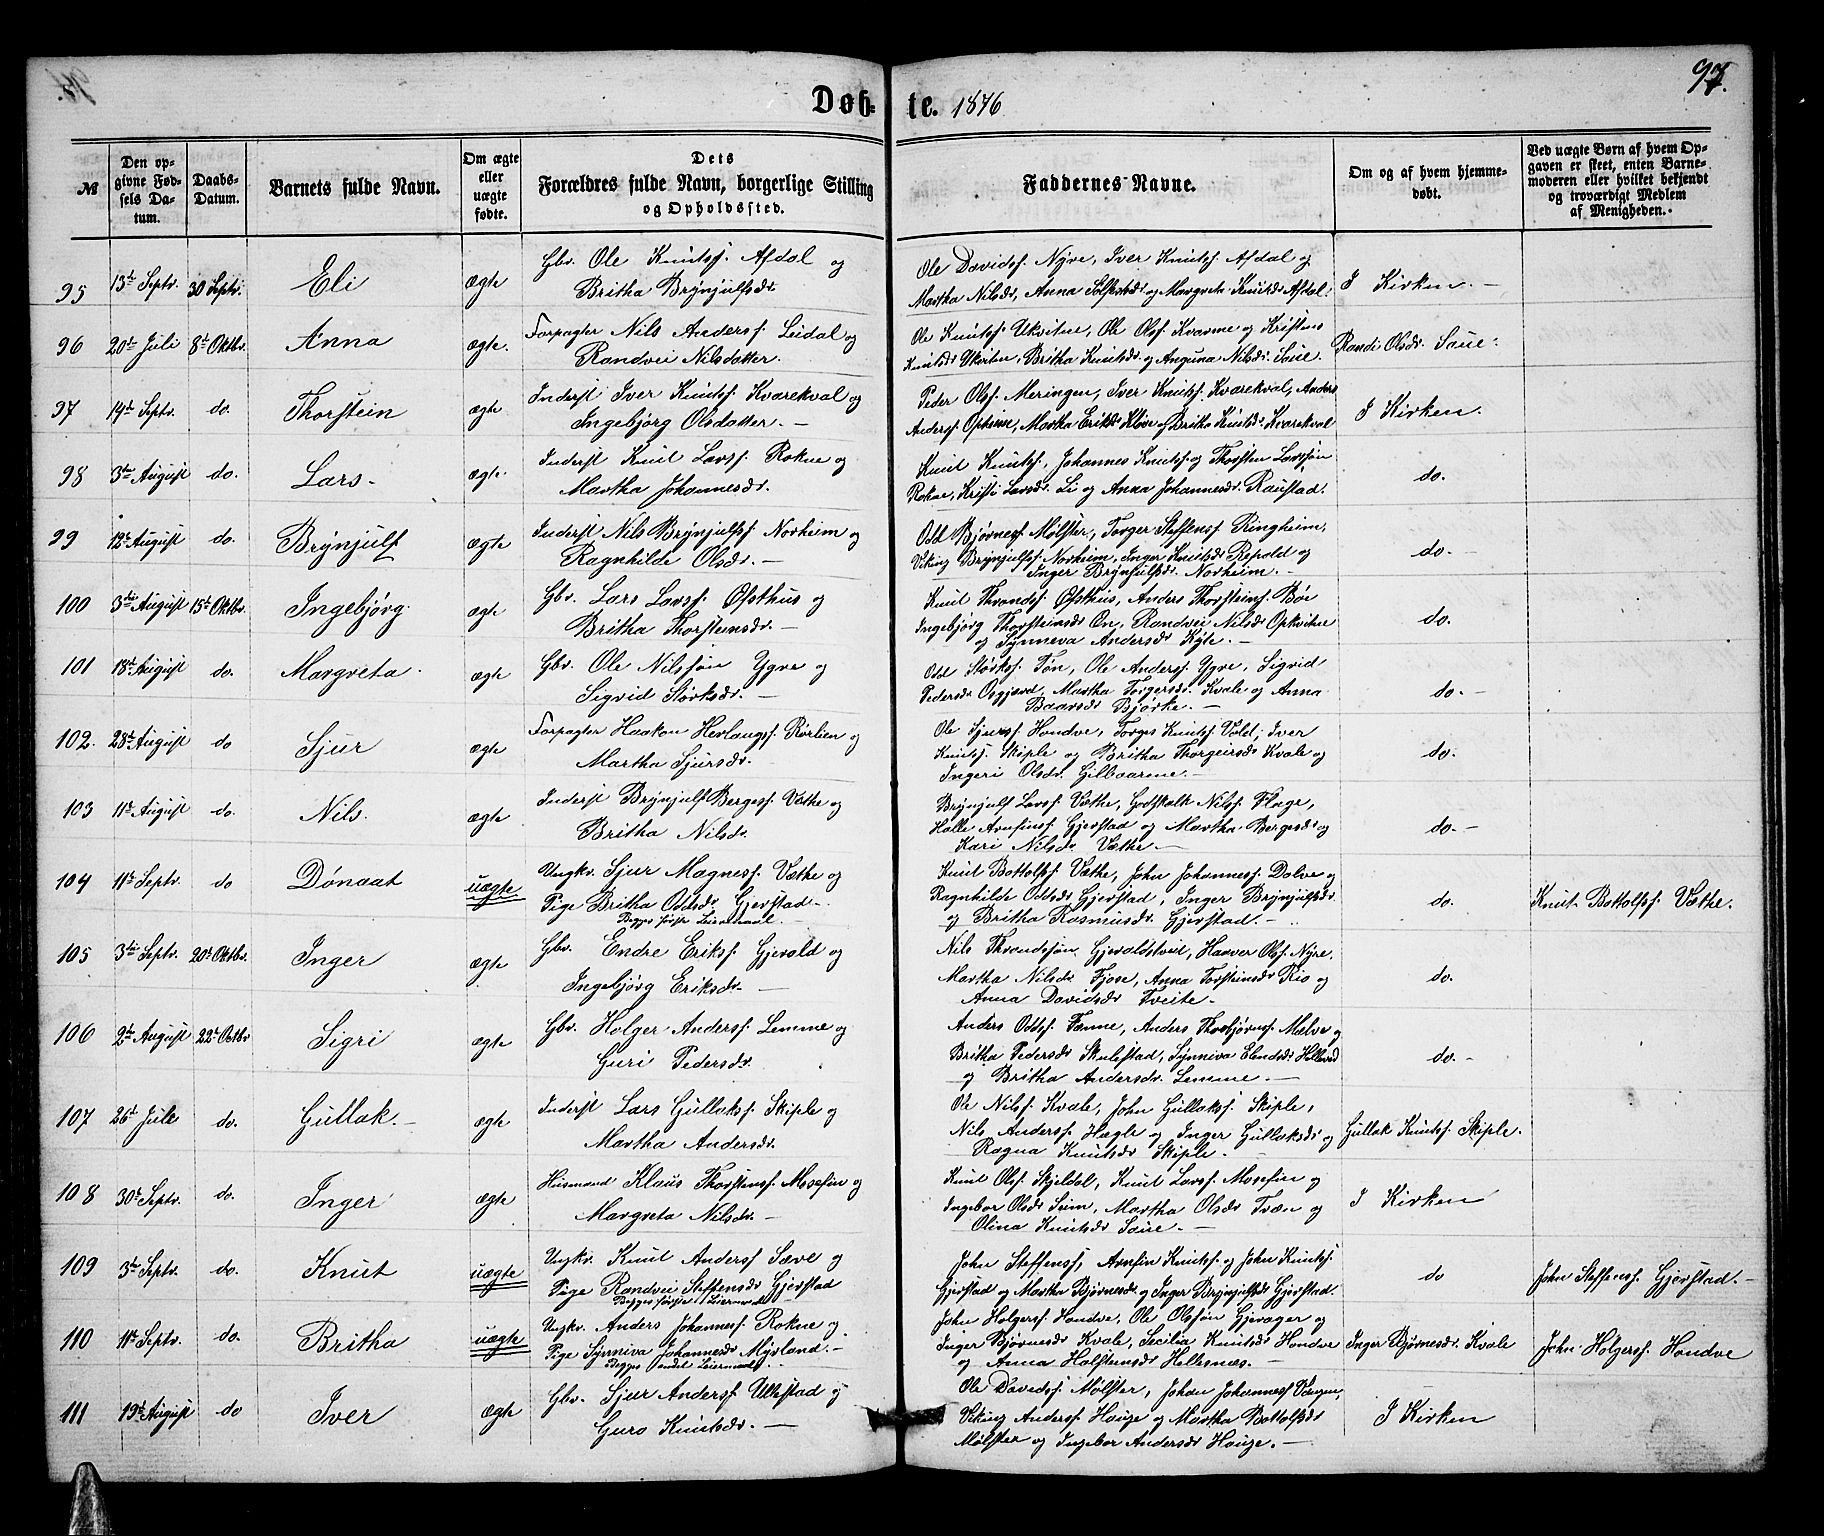 97.
Døb- te. 1876
№ | Den opgivne Fødsels Datum. | Daabs-Datum. | Barnets fulde Navn. | Om ægte eller uægte fødte. | Dets Forældres fulde Navn, borgerlige Stilling og Opholdssted. | Faddernes Navne. | Om og af hvem hjemmedøbt. | Ved uægte Børn af hvem Opgaven er skeet, enten Barnemoderen eller hvilket bekjendt og troværdigt Medlem af Menigheden.
95 | 13de Septr. | 30 Septr. | Eli | ægte | Gbr. Ole Knutsf. Afdal og
Britha Brynjulfsdr. | Ole Davidsf. Nyre, Iver Knutsf. Afdal og
Martha Nilsdr, Anna Sjolfestsdr og Margreta Knutsdr Afdal. | I Kirken. —
96 | 20de Juli | 8de Oktbr. | Anna | ægte. | Forpagter Nils Andersf. Leidal og
Randvei Nilsdatter. | Ole Knutsf. Ukvitne, Ole Olsf. Kvarme og Kristens
Knutsdr Ukvitne, Britha Knutsdr. og Anguna Nilsdr. Saue. | Randi Olsdr. Saue.
97 | 14de Septr. | do. | Thorstein | ægte. | Inderst Iver Knutsf. Kvarekval og
Ingebjørg Olsdatter. — | Peder Olsf. Meringen, Iver Knutsf. Kvarekval, Anders
Andersf. Opheim, Martha Eriksdr Kløve og Britha Knutsdr. Kvarekval | I Kirken.
98 | 3die August | do. | Lars. | ægte. | Inderst Knut Larsf. Rokne og
Martha Johannesdr. | Knut Knutsf., Johannes Knutsf. og Thorsten Larssøn
Rokne, Kristi Larsdr. Li og Anna Johannesdr. Raustad. | do.
99 | 12te August | do. | Brynjulf | ægte | Inderst Nils Brynjulfsf. Norheim og
Ragnhilde Olsdr. — | Odd Bjørnesf. Mølster, Torger Steffensf. Ringheim,
Viking Brynjulfsf. Norheim, Inger Knutsdr Repold og
Inger Brynjulfsdr. Norheim. — | do. —
100 | 3die August | 15de Oktbr. | Ingebjørg. | ægte | Gbr. Lars Larsf. Øfsthus og
Britha Thorsteinsdr. — | Knut Throndsf. Øfsthus, Anders Thorsteinsf. Bøe
Ingebjørg Thorsteinsdr Øn, Randvei Nilsdr Opkvitne
og Synneva Andersdr Kyte. — | do.
101 | 18de August | do. | Margreta. | ægte | Gbr. Ole Nilssøn Ygre og
Sigrid Størksdr. — | Odd Størksf. Tøn, Ole Andersf. Ygre, Sigrid
Pedersdr Osgjerd, Martha Torgersdr. Kvale og Anna
Baarsdr Bjørke. — | do. —
102. | 28de August | do | Sjur | ægte | Forpagter Haakon Herlaugsf. Rørlien og
Martha Sjursdr. | Ole Sjursf. Hondve, Torger Knutsf. Vold, Iver
Knutsf. Skiple og Britha Thorgeirsdr Kvale og
Ingeri Olsdr. Gilbaarme. — | do.
103 | 11te August | do. | Nils. | ægte | Inderst Brynjulf Bergesf. Væthe og
Britha Nilsdr | Brynjulf Larsf. Væthe, Godskalk Nilsf. Flage,
Halle Arnfinsf. Gjerstad og Martha Bergesdr og
Kari Nilsdr. Væthe. — | do. —
104 | 11te Septr. | do | Dónaat | uægte | Ungkr. Sjur Magnesf. Væthe og
Pige Britha Oddsdr. Gjerstad. —
Begges første Leiermaal. — | Knut Bottolfsf. Væthe, John Johannesf. Dolve og
Ragnhilde Oddsdr Gjerstad, Inger Brynjulfsdr
og Britha Rasmusdr. Gjerstad. — | do. | Knut Bottolfsf. Væthe.
105 | 3die Septr. | 20de Oktbr. | Inger | ægte | Gbr. Endre Eriksf. Gjerald og
Ingebjørg Eriksdr. — | Nils Throndssøn Gjeraldstveit, Haaver Olsf. Nyre,
Martha Nilsdr Fjose, Anna Torsteinsdr Rio og
Anna Davidsdr Tveite. | do.
106 | 2den August | 22de Octbr | Sigri | ægte | Gbr. Holger Andersf. Lemme og
Guri Pedersdr. | Anders Oddsf. Fenne, Anders Thorbjørnsf. Mølve og
Britha Pedersdr Skulestad, Synniva Elendsdr Helland
og Britha Andersdr. Lemme. — | do. —
107 | 26de Jule | do. | Gullak. — | ægte | Inderst Lars Gullaksf. Skiple og
Martha Andersdr. | Ole Nilsf. Kvale, John Gullaksf. Skiple,
Nils Andersf. Hægle og Inger Gullaksdr og
Ragna Knutsdr Skiple. — | Gullak Knutsf. Skiple.
108 | 30te Septr. | do. | Inger | ægte | Husmand Klaus Thorstensf. Mosefin og
Margreta Nilsdr. — | Knut Olsf. Skjeldal, Knut Larsf. Mosefin og
Ingebor Olsdr Seim, Martha Olsdr Tvæn og
Olina Knutsdr Saue. — | I Kirken
109 | 3die Septr. | do. | Knut | uægte | Ungkr. Knut Andersf Sæve og
Pige Randvei Steffensdr Gjerstad
Begges første Leiermaal — | John Steffensf, Arnfin Knutsf. og John Knutsf.
Gjerstad og Martha Bjørnesdr. og Inger Brynjulfsdr Gjerstad. | do | John Steffensf. Gjerstad. —
110 | 11te Septr. | do. | Britha | uægte | Ungkr. Anders Johannesf. Rokne og
Pige Synniva Johannesdr Myrland. —
Begges andet Leiermaal. | John Holgersf. Hondve, Ole Olssøn Gjerager og
Inger Bjørnesdr Kvale, Secilia Knutsdr Hondve
og Anna Holstensdr Hellesnæs. — | Inger Bjørnesdr. Kvale | John Holgersf. Hondve
111 | 19de August | do | Iver | ægte | Gbr. Sjur Andersf Ullestad og
Guro Knutsdr. — | Ole Davidsf. Mølster, Johan Johannesf Vangen,
Viking Andersf. Hauge og Martha Bottolfsdr
Mølster og Ingebor Andersdr Hauge. — | I Kirken